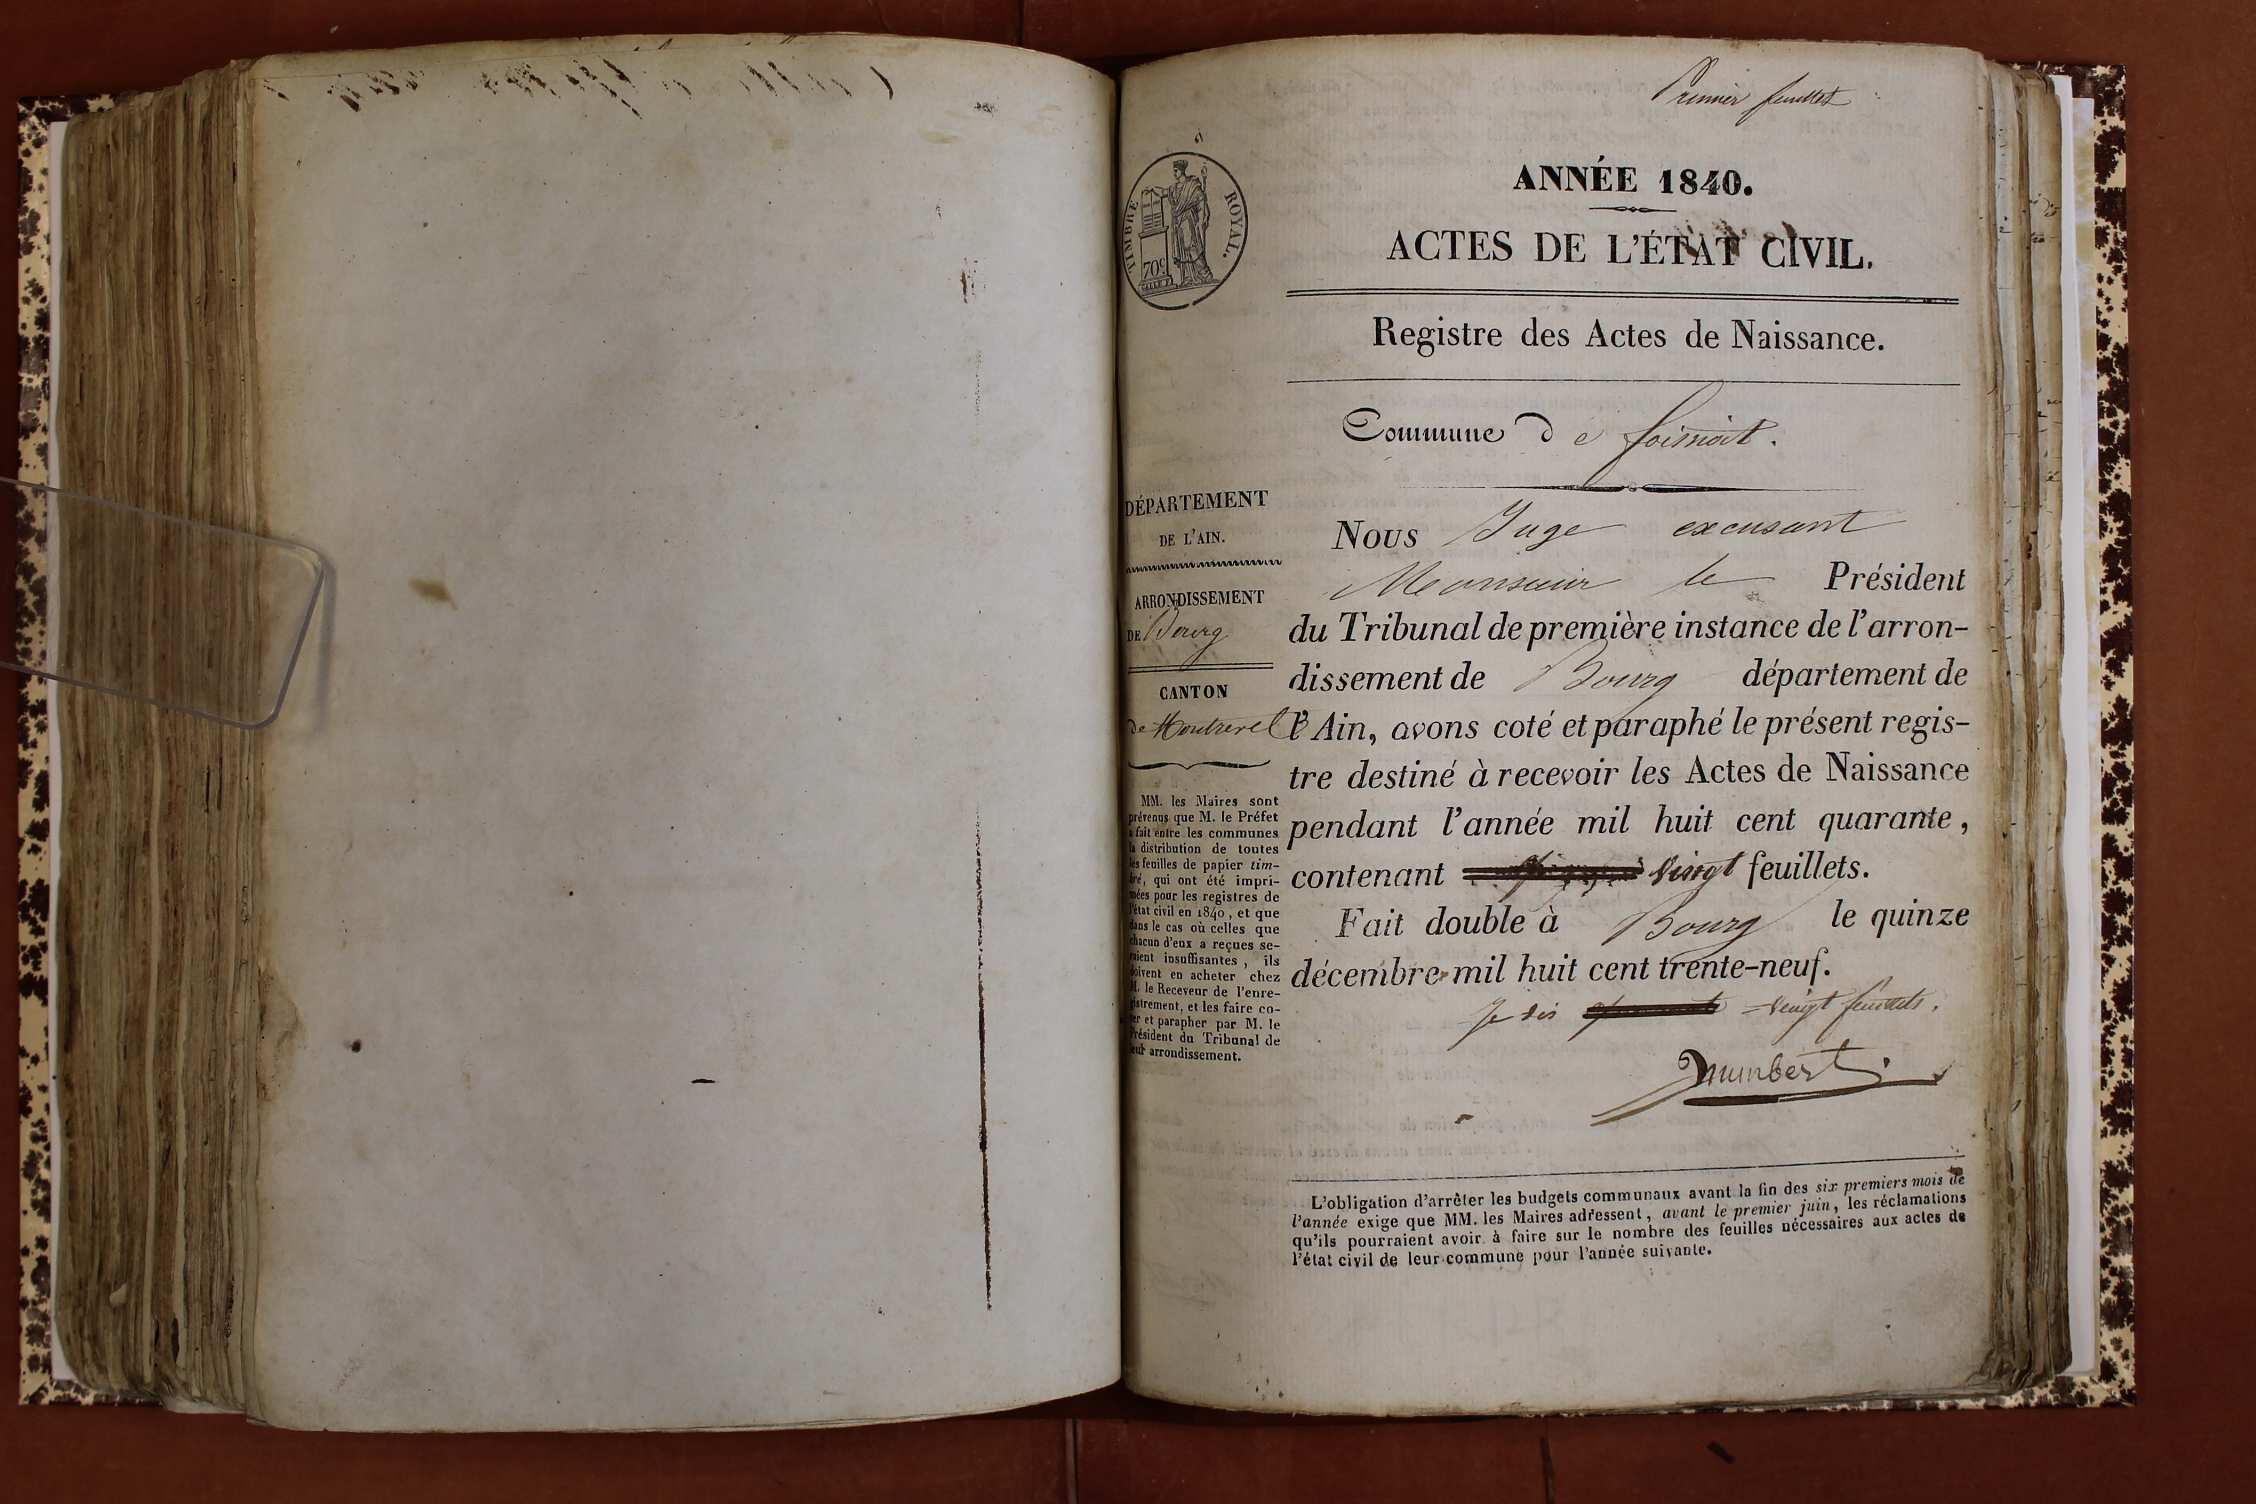 Premier feuillet
TIMBRE ROYAL.
70c
ANNÉE 1840.
ACTES DE L'ÉTAT CIVIL.
Registre des Actes de Naissance.
Commune de foissiat.
DÉPARTEMENT
DE L'AIN.
ARRONDISSEMENT
DE Bourg
CANTON
de Montrevel
MM. les Maires sont
prévenus que M. le Préfet
a fait entre les communes
la distribution de toutes
les feuilles de papier tim-
bré, qui ont été impri-
mées pour les registres de
l'état civil en 1840, et que
dans le cas où celles que
chacun d'eux a reçues se-
raient insuffisantes, ils
doivent en acheter chez
M. le Receveur de l'enre-
gistrement, et les faire co-
ter et parapher par M. le
Président du Tribunal de
leur arrondissement.
Nous Juge excusant
Monsieur le Président
du Tribunal de première instance de l'arron-
dissement de Bourg département de
l'Ain, avons coté et paraphé le présent regis-
tre destiné à recevoir les Actes de Naissance
pendant l'année mil huit cent quarante,
contenant vingt feuillets.
Fait double à Bourg le quinze
décembre mil huit cent trente-neuf.
Je dis vingt feuillets.
L'obligation d'arrêter les budgets communaux avant la fin des six premiers mois de
l'année exige que MM. les Maires adressent, avant le premier juin, les réclamations
qu'ils pourraient avoir à faire sur le nombre des feuilles nécessaires aux actes de
l'état civil de leur commune pour l'année suivante.